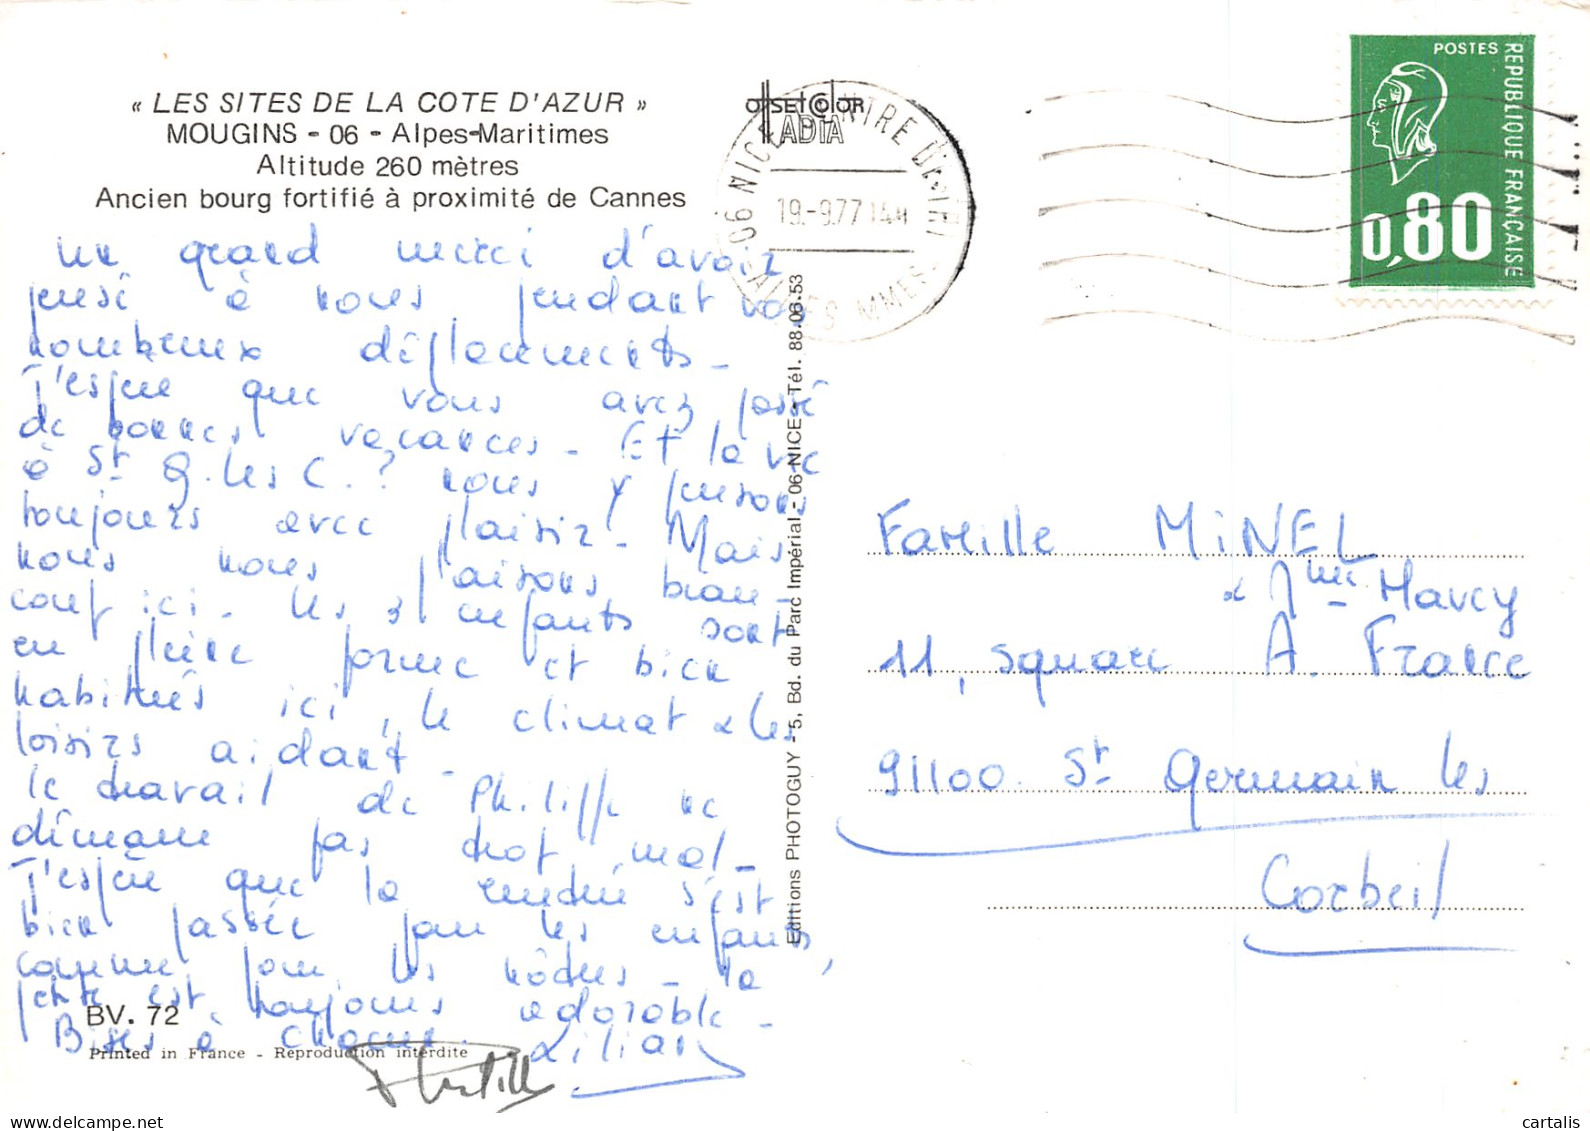 « LES SITES DE LA COTE D'AZUR »
MOUGINS - 06 - Alpes-Maritimes
Altitude 260 mètres
Ancien bourg fortifié à proximité de Cannes
un grand merci d'avoir
pensé à nous pendant vos
nombreux déplacements -
J'espère que vous avez passé
de bonnes vacances - Et la vie
à St G. les C. ? nous y pensons
toujours avec plaisir - Mais
nous nous plaisons beau-
coup ici - les 3 enfants sont
en pleine forme et bien
habitués ici, le climat & les
loisirs aidant -
le travail de Philippe ne
démarre pas trop mal -
J'espère que la rentrée s'est
bien passée pour les enfants,
comme pour les nôtres - la
petite est toujours adorable -
Bises à chacun. Lilian
BV. 72
Printed in France - Reproduction interdite
Editions PHOTOGUY - 5, Bd. du Parc Impérial - 06 NICE - Tél. 88.06.53
offset color
ADIA
06 NICE CENTRE
19.-9.77 14H
ALPES MMES
POSTES
REPUBLIQUE FRANÇAISE
0,80
Famille MINEL
& Mme Marcy
11, square A. France
91100 St Germain les
Corbeil
cartalis
www.delcampe.net